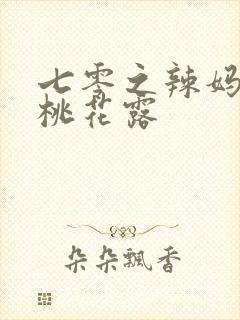 七零之辣妈
桃花露
朵朵飘香